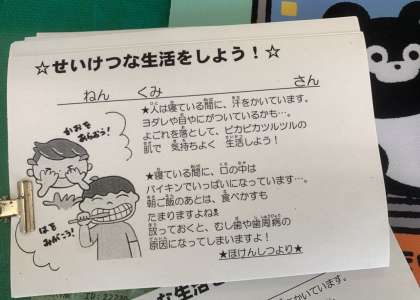 ☆せいけつな生活をしよう！☆
ねん くみ さん
かおをあらおう！
★人は寝ている間に、汗をかいています。
ヨダレや目やにがついているかも…。
よごれを落として、ピカピカツルツルの
肌で 気持ちよく 生活しよう！
はをみがこう！
★寝ている間に、口の中は
バイキンでいっぱいになっています…。
朝ご飯のあとは、食べかすも
たまりますよね
放っておくと、むし歯や歯周病の
原因になってしまいますよ！
★ほけんしつより★
な生活
かいています。